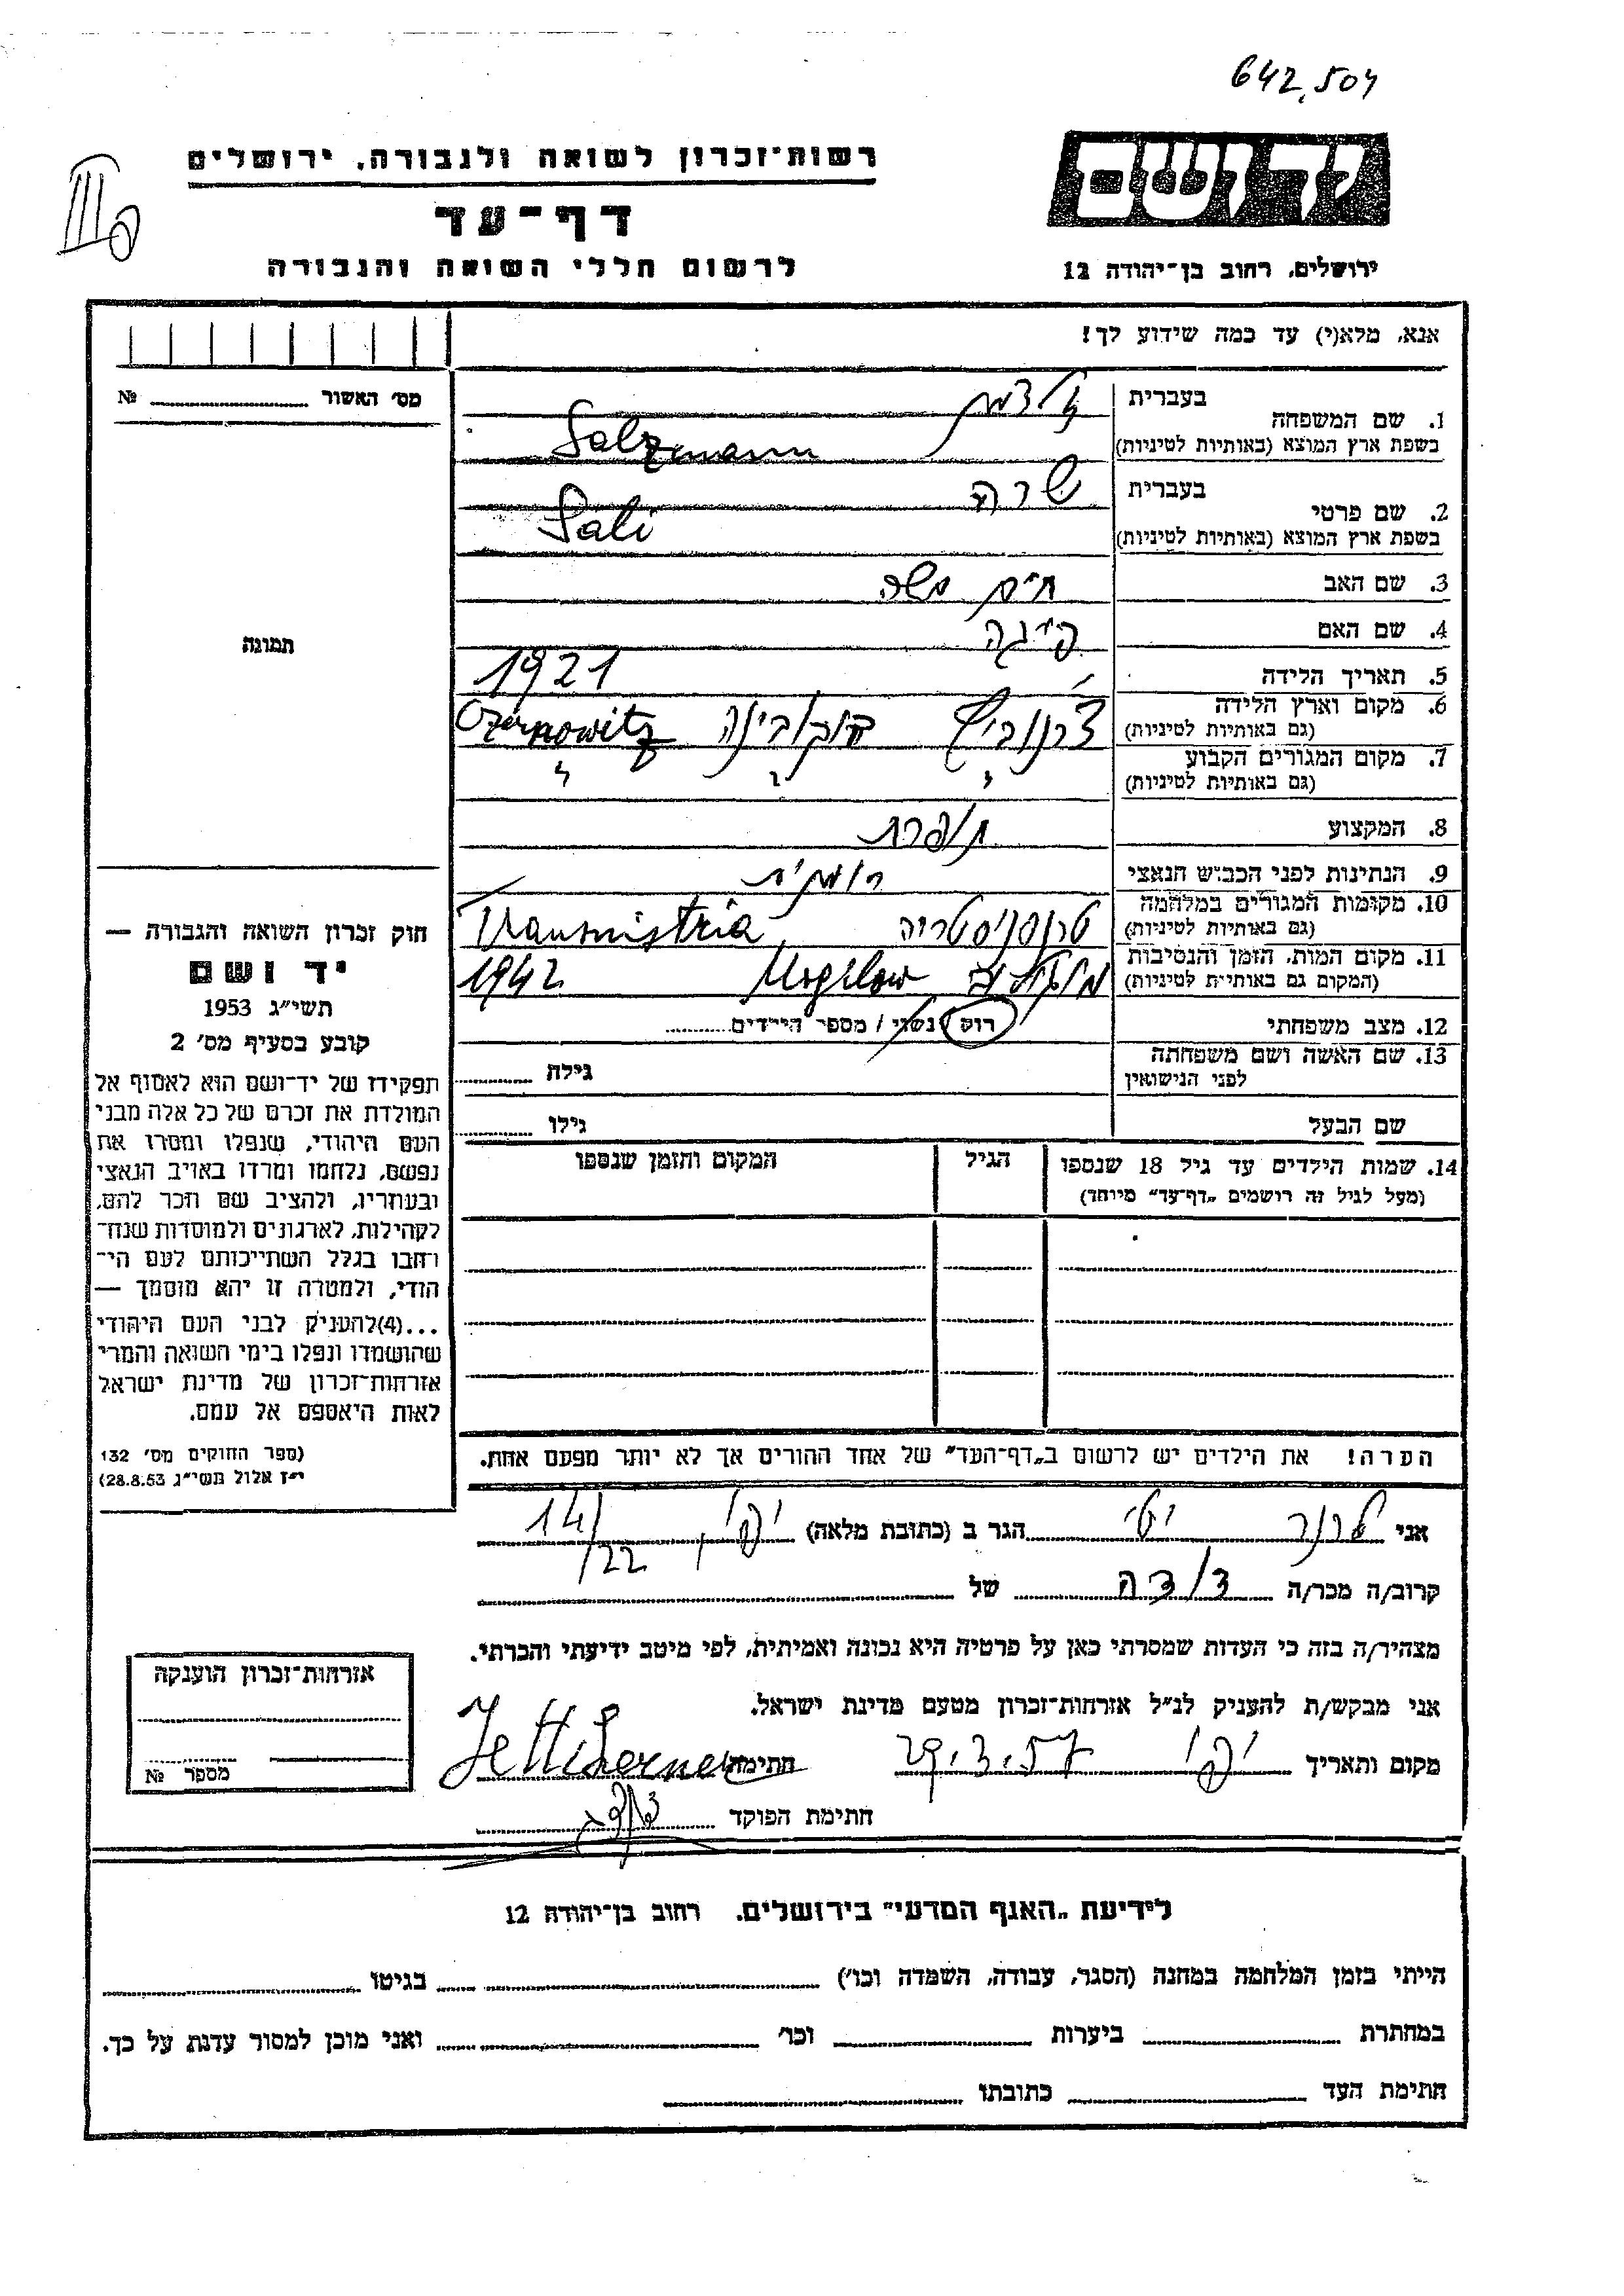 642,504
רשות־זכרון לשואה ולגבורה, ירושלים
יד ושם
דף־עד
לרשום חללי השואה והגבורה
ירושלים, רחוב בן־יהודה 12
אנא, מלא(י) עד כמה שידוע לך!
מס׳ האשור № 
תמונה
חוק זכרון השואה והגבורה —
יד ושם
תשי״ג 1953
קובע בסעיף מס׳ 2
תפקידו של יד־ושם הוא לאסוף אל
המולדת את זכרם של כל אלה מבני
העם היהודי, שנפלו ומסרו את
נפשם, נלחמו ומרדו באויב הנאצי
ובעוזריו, ולהציב שם וזכר להם,
לקהילות, לארגונים ולמוסדות שנח־
רחבו בגלל השתייכותם לעם הי־
הודי, ולמטרה זו יהא מוסמך —
...(4)להעניק לבני העם היהודי
שהושמדו ונפלו בימי השואה והמרי
אזרחות־זכרון של מדינת ישראל
לאות היאספם אל עמם.
(ספר החוקים מס׳ 132
י״ז אלול תשי״ג 28.8.53)
1. שם המשפחה בעברית זלצמן
בשפת ארץ המוצא (באותיות לטיניות) Salzmann
2. שם פרטי בעברית שרה
בשפת ארץ המוצא (באותיות לטיניות) Sali
3. שם האב חיים משה
4. שם האם פייגה
5. תאריך הלידה 1921
6. מקום וארץ הלידה (גם באותיות לטיניות) צרנוביץ בוקובינה Czernowitz
7. מקום המגורים הקבוע (גם באותיות לטיניות) " " "
8. המקצוע תופרת
9. הנתינות לפני הכבוש הנאצי רומנית
10. מקומות המגורים במלחמה (גם באותיות לטיניות) טרנסניסטריה Transnistria
11. מקום המות, הזמן והנסיבות (המקום גם באותיות לטיניות) Mogilow 1942
12. מצב משפחתי רוק / נשוי / מספר הילדים
13. שם האשה ושם משפחתה לפני הנישואין גילה
שם הבעל גילו
14. שמות הילדים עד גיל 18 שנספו הגיל המקום והזמן שנספו
(מעל לגיל זה רושמים „דף־עד״ מיוחד)
הערה! את הילדים יש לרשום ב„דף־העד״ של אחד ההורים אך לא יותר מפעם אחת.
אני לרנר יטי הגר ב (כתובת מלאה) יפו 14/22
קרוב/ה מכר/ה דודה של
מצהיר/ה בזה כי העדות שמסרתי כאן על פרטיה היא נכונה ואמיתית, לפי מיטב ידיעתי והכרתי.
אני מבקש/ת להעניק לנ״ל אזרחות־זכרון מטעם מדינת ישראל.
מקום ותאריך יפו 29.3.57 חתימה Jetti Lerner
חתימת הפוקד
אזרחות־זכרון הוענקה
מספר №
לידיעת „האגף המדעי״ בירושלים, רחוב בן־יהודה 12
הייתי בזמן המלחמה במחנה (הסגר, עבודה, השמדה וכו׳) בגיטו
במחתרת ביערות וכו׳ ואני מוכן למסור עדות על כך.
חתימת העד כתובתו